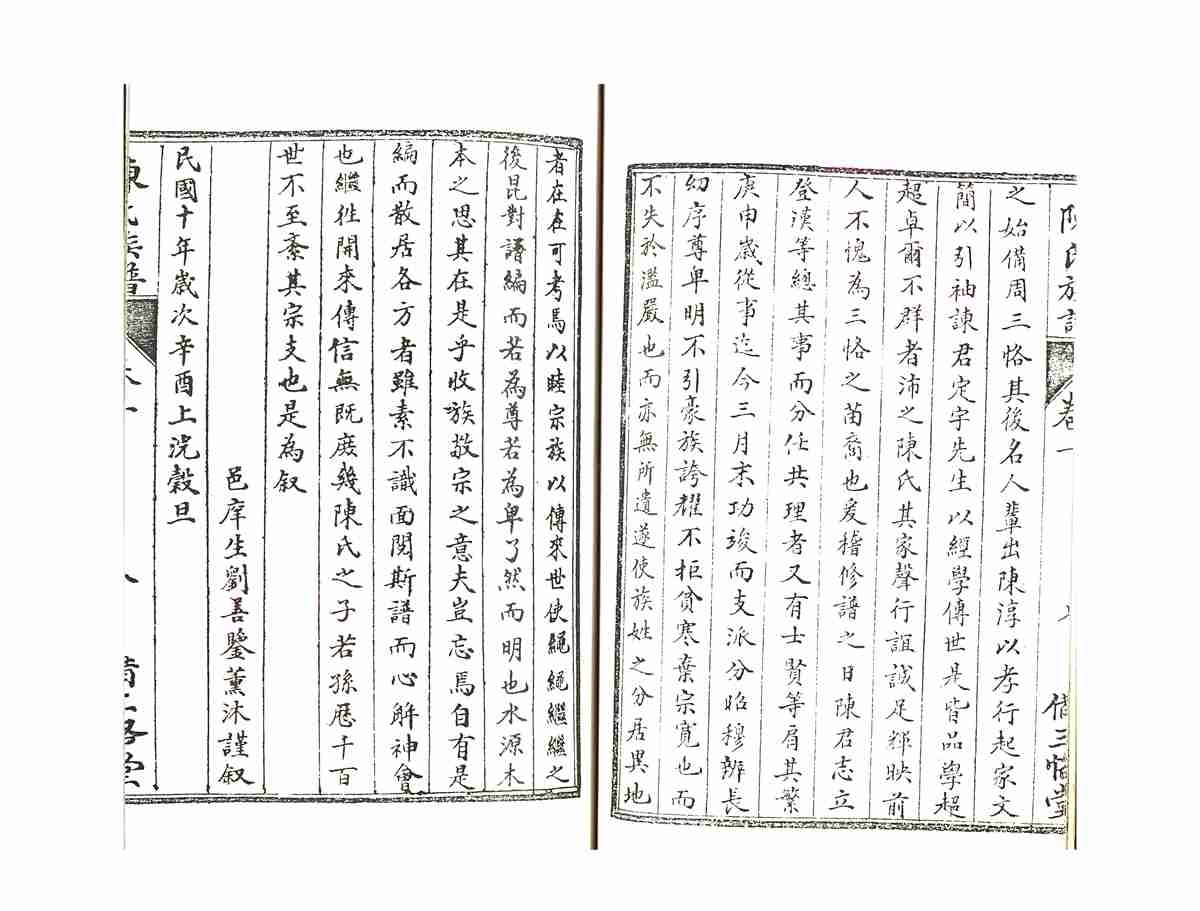 陳氏族譜 卷一 七 備三恪堂
之始備周三恪其後名人輩出陳淳以孝行起家文
簡以引袖諫君定宇先生以經學傳世是皆品學超
超卓爾不群者沛之陳氏其家聲行誼誠足輝映前
人不愧為三恪之苗裔也爰稽修譜之日陳君志立
登漢等總其事而分任共理者又有士賢等肩其繁
庚申歲從事迄今三月末功竣而支派分昭穆辨長
幼序尊卑明不引豪族誇耀不拒貧寒棄宗寬也而
不失於濫嚴也而亦無所遺遂使族姓之分居異地
者在在可考焉以睦宗族以傳來世使繩繩繼繼之
後昆對譜編而若為尊若為卑了然而明也水源木
本之思其在是乎收族敬宗之意夫豈忘焉自有是
編而散居各方者雖素不識面閱斯譜而心解神會
也繼徃開來傳信無既庶幾陳氏之子若孫歷千百
世不至紊其宗支也是為叙
邑庠生劉善鑒薰沐謹叙
民國十年歲次辛酉上浣穀旦
陳氏族譜 卷一 八 備三恪堂